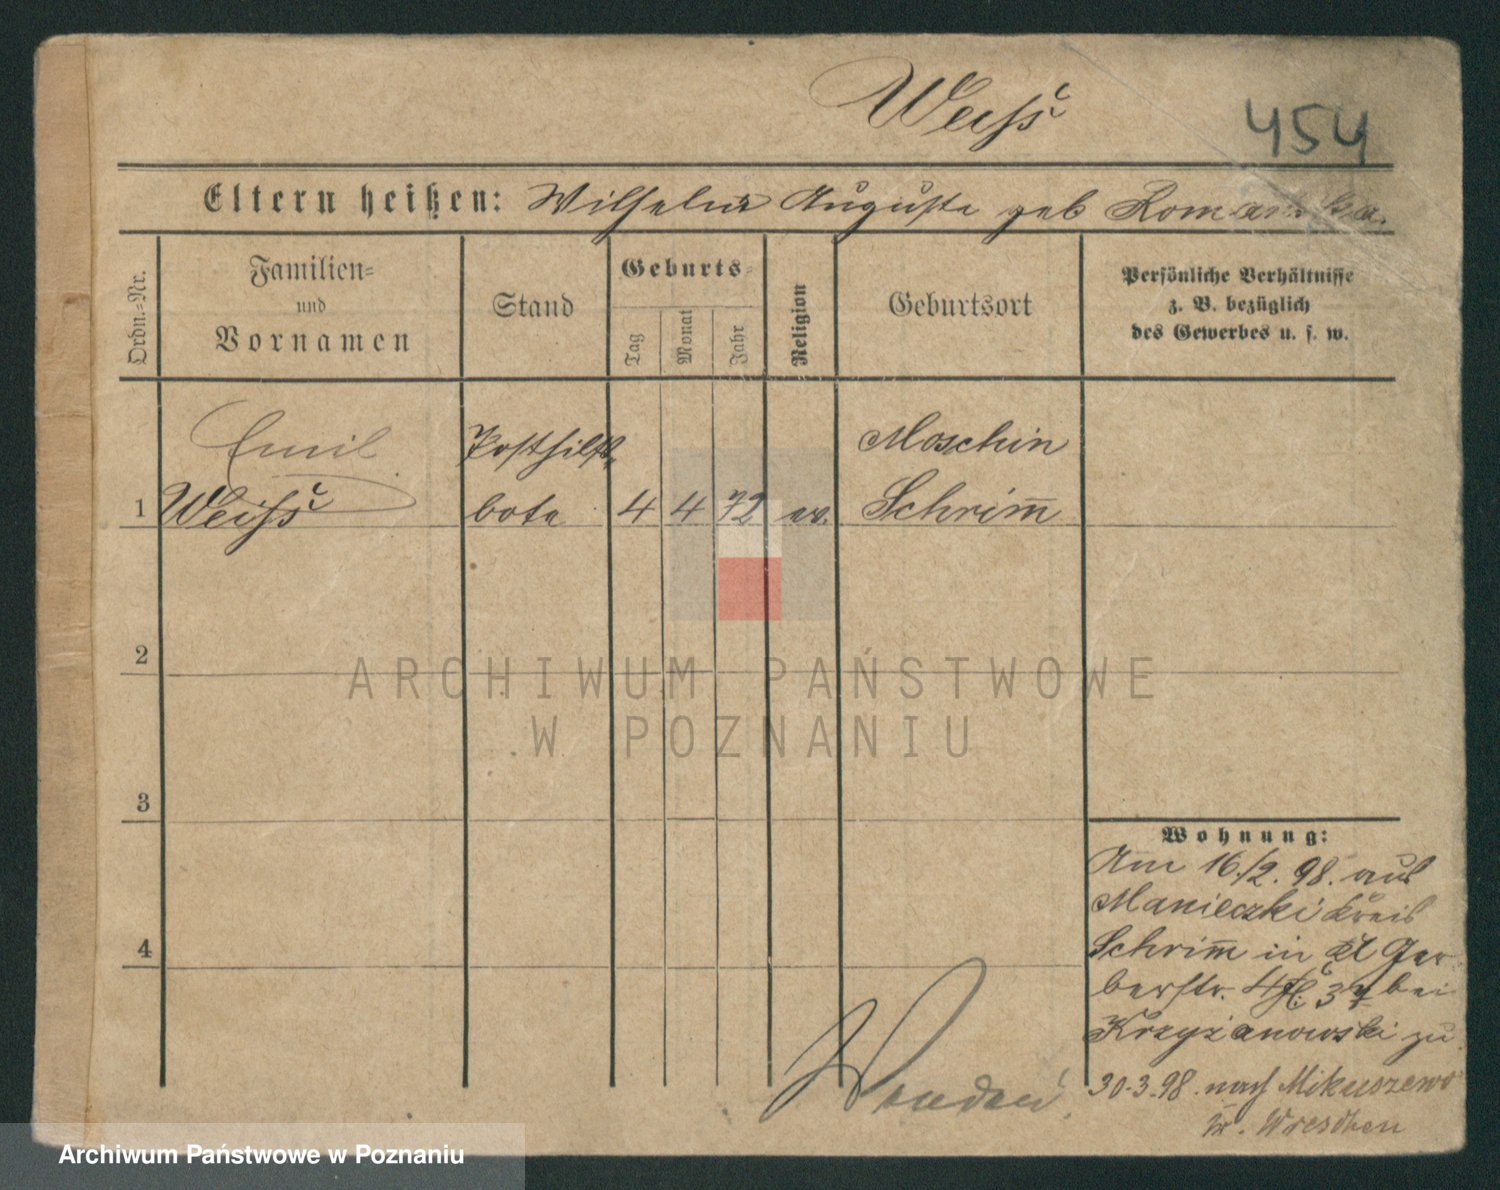 Weiß
454
Eltern heißen: Wilhelm Auguste geb Romanska.
Ordn.-Nr.
Familien-
und
Vornamen
Stand
Geburts-
Tag
Monat
Jahr
Religion
Geburtsort
Persönliche Verhältnisse
z. B. bezüglich
des Gewerbes u. s. w.
Emil
Posthilfs,
Moschin
1 Weiß
bote 4 4 72 ev. Schrim̅
2
ARCHIWUM PAŃSTWOWE
W POZNANIU
3
Wohnung:
Am 16./2. 98. aus
Manieczki Kreis
4
Schrim̅ in Ger
berstr. 4 bei
Krzyżanowski zu
Wenden!
30.3.98. nach Mikuszewo
Kr. Wreschen
Archiwum Państwowe w Poznaniu